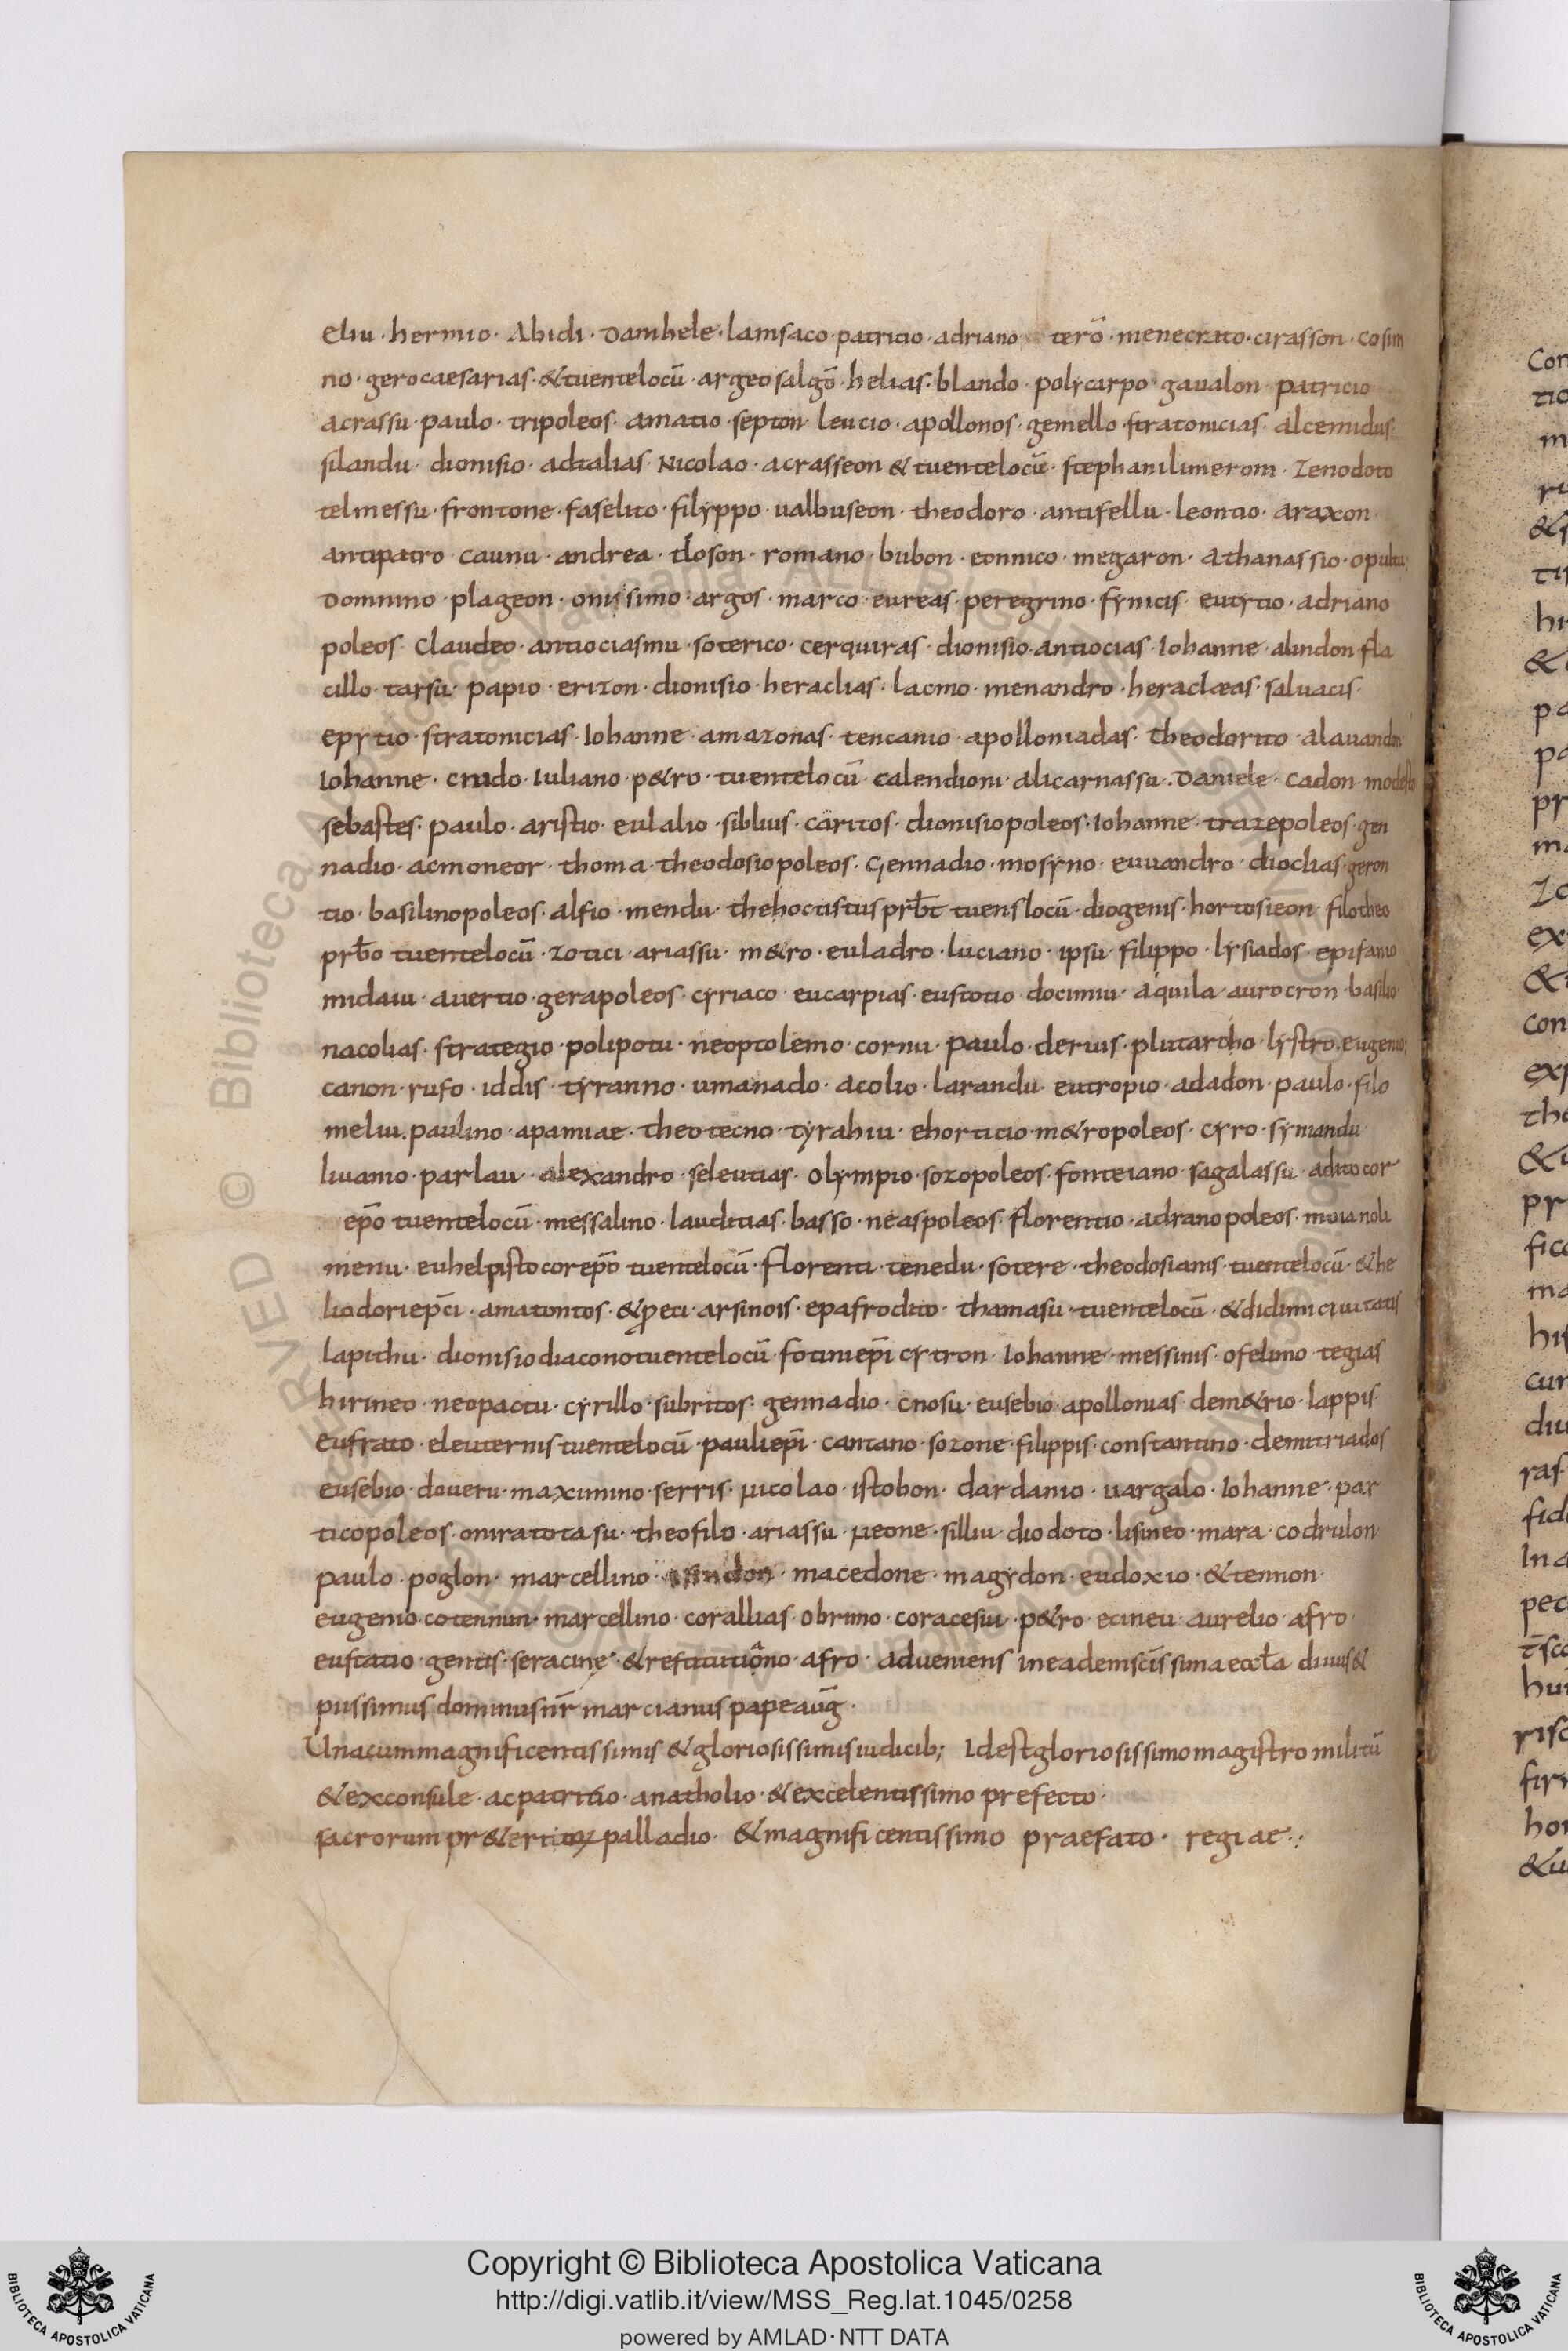 eliu · hermio · Abidi · Damhele · lamsaco · patricio · adriano terō · menecrato · cirasson · cosim
no · gerocaesarias · &tuentelocū · argeosalgō · helias · blando · polycarpo · gaualon · patricio
acrassu · paulo · tripoleos · amatio · septon · leucio · apollonos · gemello · stratonicias · alcemidus
silandu · dionisio · adtalias · Nicolao · acrasseon & tuentelocū · stephanilimerom · Zenodoto
telmessu · frontone · faselito · filyppo · ualbuseon · theodoro · antifellu · leontio · araxon ·
antipatro · caunu · andrea · tloson · romano · bubon · eonnico · megaron · Athanassio · opuntu;
Domnino · plageon · onissimo · argos · marco · eureas · peregrino · fynicis · eutytio · adriano
poleos · Claudeo · antiociasmu · soterico · cerquiras · dionisio · antiocias · Iohanne · alindon fla
cillo · tarsu · papio · erizon · dionisio · heraclias · lacmo · menandro · heraclæas · saluacis ·
epytio · stratonicias · Iohanne · amazonas · tencanio · apolloniadas · theodorito · alauandon
Iohanne · cnido · Iuliano · p&ro · tuentelocū · calendioni · alicarnassu · Daniele · cadon · modesto
sebastes · paulo · aristio · eulalio · siblius · caritos · dionisiopoleos · Iohanne · trazepoleos · gen
nadio · acmoneor · thoma · theodosiopoleos · Gennadio · mosyno · euuandro · dioclias · geron
tio · basilinopoleos · alfio · mendu · thehoctistus prƀt tuens locū · diogenis · hortosieon · filotheo
prƀo tuentelocū · zotici · ariassu · m&ro · euladro · luciano · ipsu · filippo · lysiados · epifanio
midaiu · auertio · gerapoleos · cyriaco · eucarpias · eustotio · docimiu · aquila · aurocron · basilio
nacolias · strategio · polipotu · neoptolemo · cornu · paulo · deruis · plutarcho · lystro · eugenio;
canon · rufo · iddis · tyranno · umanado · acolio · larandu · eutropio · adadon · paulo · filo
meliu · paulino · apamiae · theotecno · tyrahiu · ehorticio · m&ropoleos · cyro · symandu
liuanio · parlau · alexandro · seleutias · olympio · sozopoleos · fonteiano · sagalassu · aditocor
ep̄o tuentelocū · messalino · lauditias · basso · neaspoleos · florentio · adranopoleos · moianoli
menu · euhelpistocorep̄o tuentelocū · florenti · tenedu · sotere · theodosianis · tuentelocū · & he
liodoriep̄ci · amatontos · &p̱eci · arsinois · epafrodito · thamasu · tuentelocū · &didimiciuitatis
lapithu · dionisio diacono tuentelocū fotiniep̄i cytron · Iohanne · messinis · ofelimo · tegias
hirineo · neopactu · cyrillo · subritos · gennadio · cnosu · eusebio · apollonias · dem&rio · lappis
eufrato · eleuternis tuentelocū · pauliep̄i · cantano · sozone · filippis · constantino · demitriados
eusebio · doueru · maximino · serris · Nicolao · istobon · dardanio · uargalo · Iohanne · par
ticopoleos · oniratotasu · theofilo · ariassu · Neone · silliu · diodoto · lisineo · mara · codrulon
paulo · poglon · marcellino · isindon · macedone · magydon · eudoxio · &tennon ·
eugenio · cotennun · marcellino · corallias · obrimo · coracesiu · p&ro · ecineu · aurelio · afro ·
eustatio · gentis · seracinę · &restitutiôno · afro · adueniens ineademsc̄issima eccƚa diuus&
piissimus dominus nr̄ marcianus pape auḡ ·
Unacum magnificentissimis & gloriosissimis iudicib; Idest gloriosissimo magistro militū
& exconsule · ac patritio · anatholio · & excelentissimo prefecto ·
sacrorum pr&ertitoꝝ palladio · & magnificentissimo praefato · regiae ·:·
Copyright © Biblioteca Apostolica Vaticana
http://digi.vatlib.it/view/MSS_Reg.lat.1045/0258
powered by AMLAD · NTT DATA